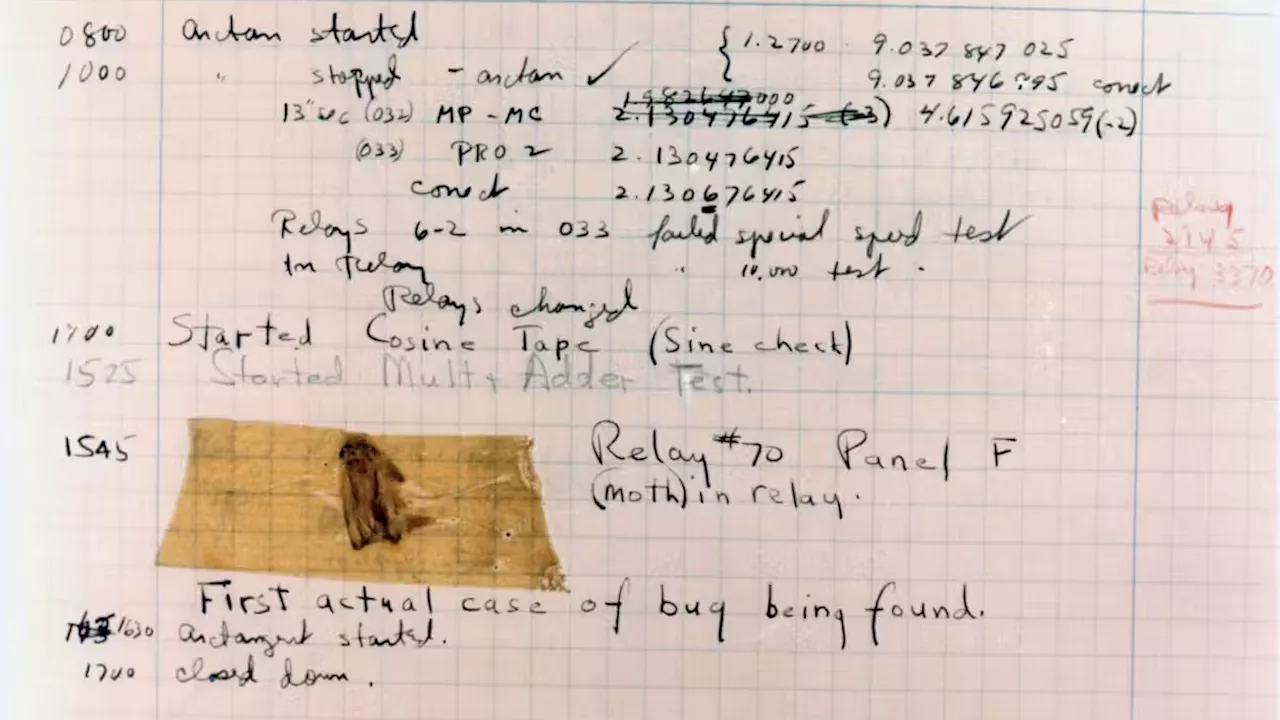 0800 arctan started { 1.2700 9.037 847 025
1000 " stopped - arctan ✓ 9.037 846 995 correct
13" sec (032) MP - MC 1.982647000
2.130476415 (-3) 4.615925059(-2)
(033) PRO 2 2.130476415
correct 2.130676415
Relays 6-2 in 033 failed special speed test
In Relay " 10.000 test .
Relays changed
Relay
2145
Relay 3370
Started Cosine Tape (Sine check)
1525 Started Mult + Adder Test.
1545 Relay #70 Panel F
(moth) in relay.
First actual case of bug being found.
1630 arctangent started.
1700 closed down .